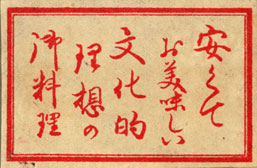 安くて
お美味しい
文化的
理想の
御料理